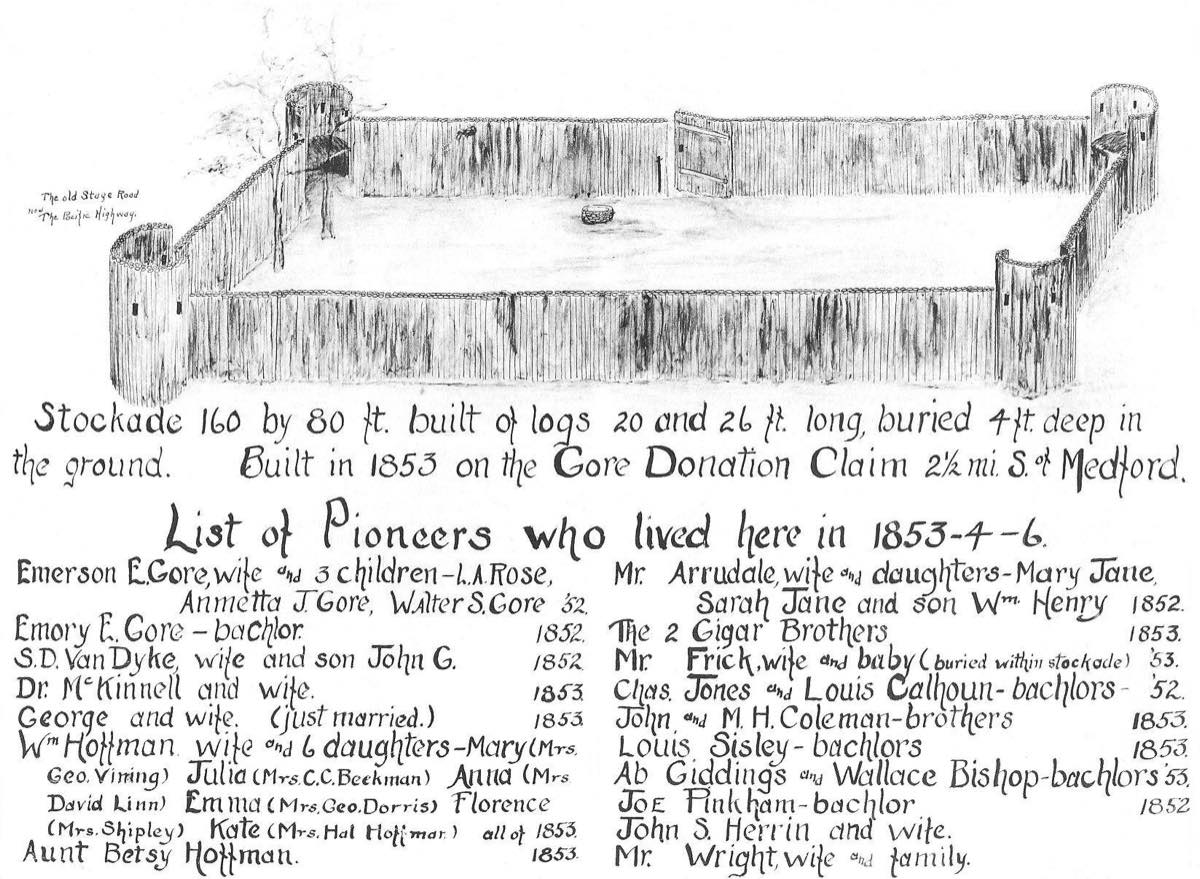 The old Stage Road
now The Pacific Highway.
Stockade 160 by 80 ft. built of logs 20 and 26 ft. long, buried 4 ft. deep in
the ground. Built in 1853 on the Gore Donation Claim 2½ mi. S. of Medford.
List of Pioneers who lived here in 1853-4-6.
Emerson E. Gore, wife and 3 children - L.A. Rose,
Anmetta J. Gore, Walter S. Gore '52.
Emory E. Gore - bachlor. 1852.
S.D. Van Dyke, wife and son John G. 1852
Dr. McKinnell and wife. 1853
George and wife. (just married.) 1853
Wm Hoffman wife and 6 daughters - Mary (Mrs.
Geo. Vining) Julia (Mrs. C.C. Beekman) Anna (Mrs
David Linn) Emma (Mrs. Geo. Dorris) Florence
(Mrs. Shipley) Kate (Mrs. Hal Hoffman) all of 1853.
Aunt Betsy Hoffman. 1853.
Mr. Arrudale, wife and daughters - Mary Jane,
Sarah Jane and son Wm. Henry 1852.
The 2 Gigar Brothers 1853.
Mr. Frick, wife and baby (buried within stockade) '53.
Chas. Jones and Louis Calhoun - bachlors - '52.
John and M. H. Coleman - brothers 1853.
Louis Sisley - bachlors 1853
Ab Giddings and Wallace Bishop - bachlors '53.
Joe Pinkham - bachlor 1852
John S. Herrin and wife.
Mr. Wright, wife and family.